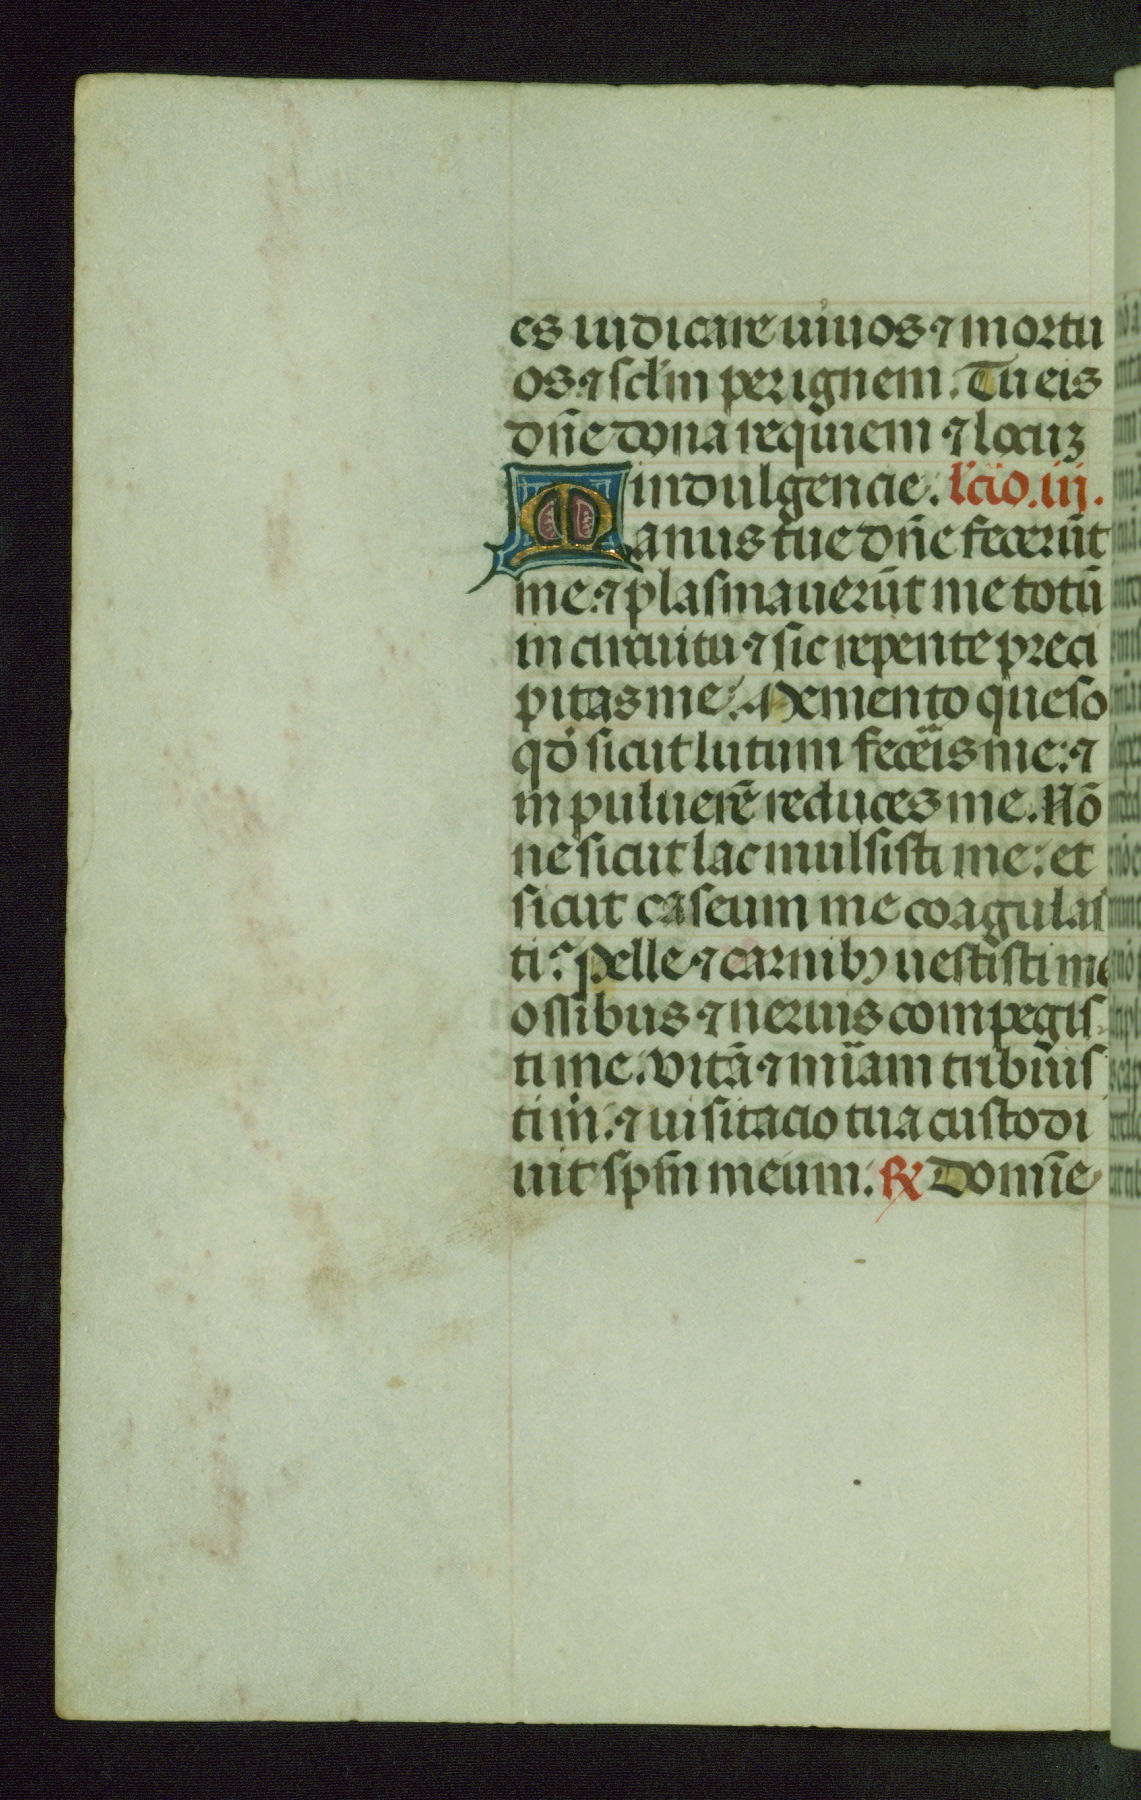 es iudicare uiuos ⁊ mortu
os ⁊ sclm̄ per ignem. Tu eis
dn̄e dona requiem ⁊ locuꝫ
indulgencie. lc̄io .iii.
Manus tue dn̄e fecerūt
me ⁊ plasmauerūt me totū
in circuitu ⁊ sic repente preci
pitas me. Memento queso
qđ sicut lutum feceris me: ⁊
in puluerē reduces me. Nō
ne sicut lac mulsisti me: et
sicut caseum me coagulas
ti? Pelle ⁊ carnibꝰ uestisti me
ossibus ⁊ neruis compegis
ti me. Vitā ⁊ mīam tribuis
ti m̄: ⁊ uisitacio tua custodi
uit spm̄ meum. ℟ Domīe